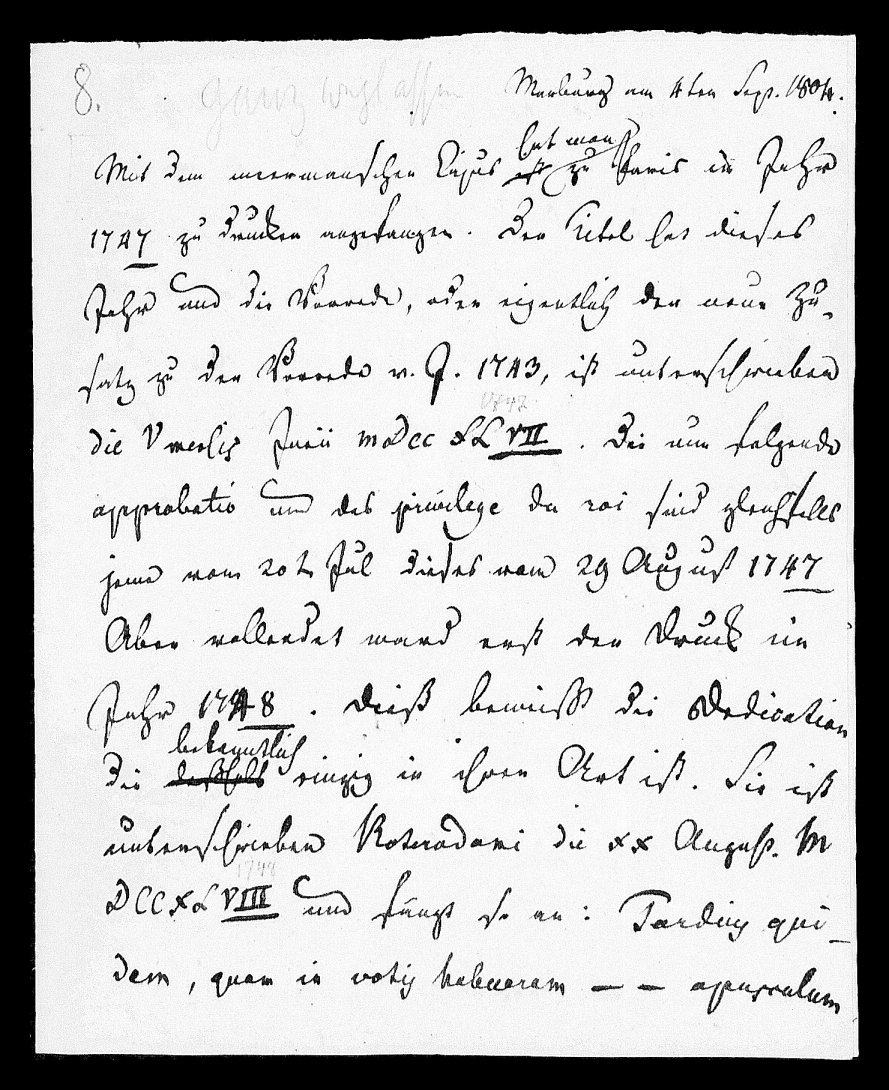 8. ganz weglassen Marburg am 4ten Sep. 1804.
Mit dem meermanschen Cajus ist hat man zu Paris im Jahr
1747 zu drucken angefangen. Der Titel hat dieses
Jahr und die Vorrede, oder eigentlich der neue Zu-
satz zu der Vorrede v. J. 1743, ist unterschrieben
1747
die V mensis Junii MDCCXLVII. Die nun folgende
approbatio und das privilege du roi sind gleichfalls
jene vom 20t Jul dieses vom 29 August 1747
Aber vollendet ward erst der Druck im
Jahr 1748. Dieß beweißt die Dedication
bekanntlich
die deßhalb einzig in ihrer Art ist. Sie ist
unterschrieben Roterodami die XX August. M
1748
DCCXLVIII und fängt so an: Tardius qui-
dem, quam in votis habueram — — opusculum